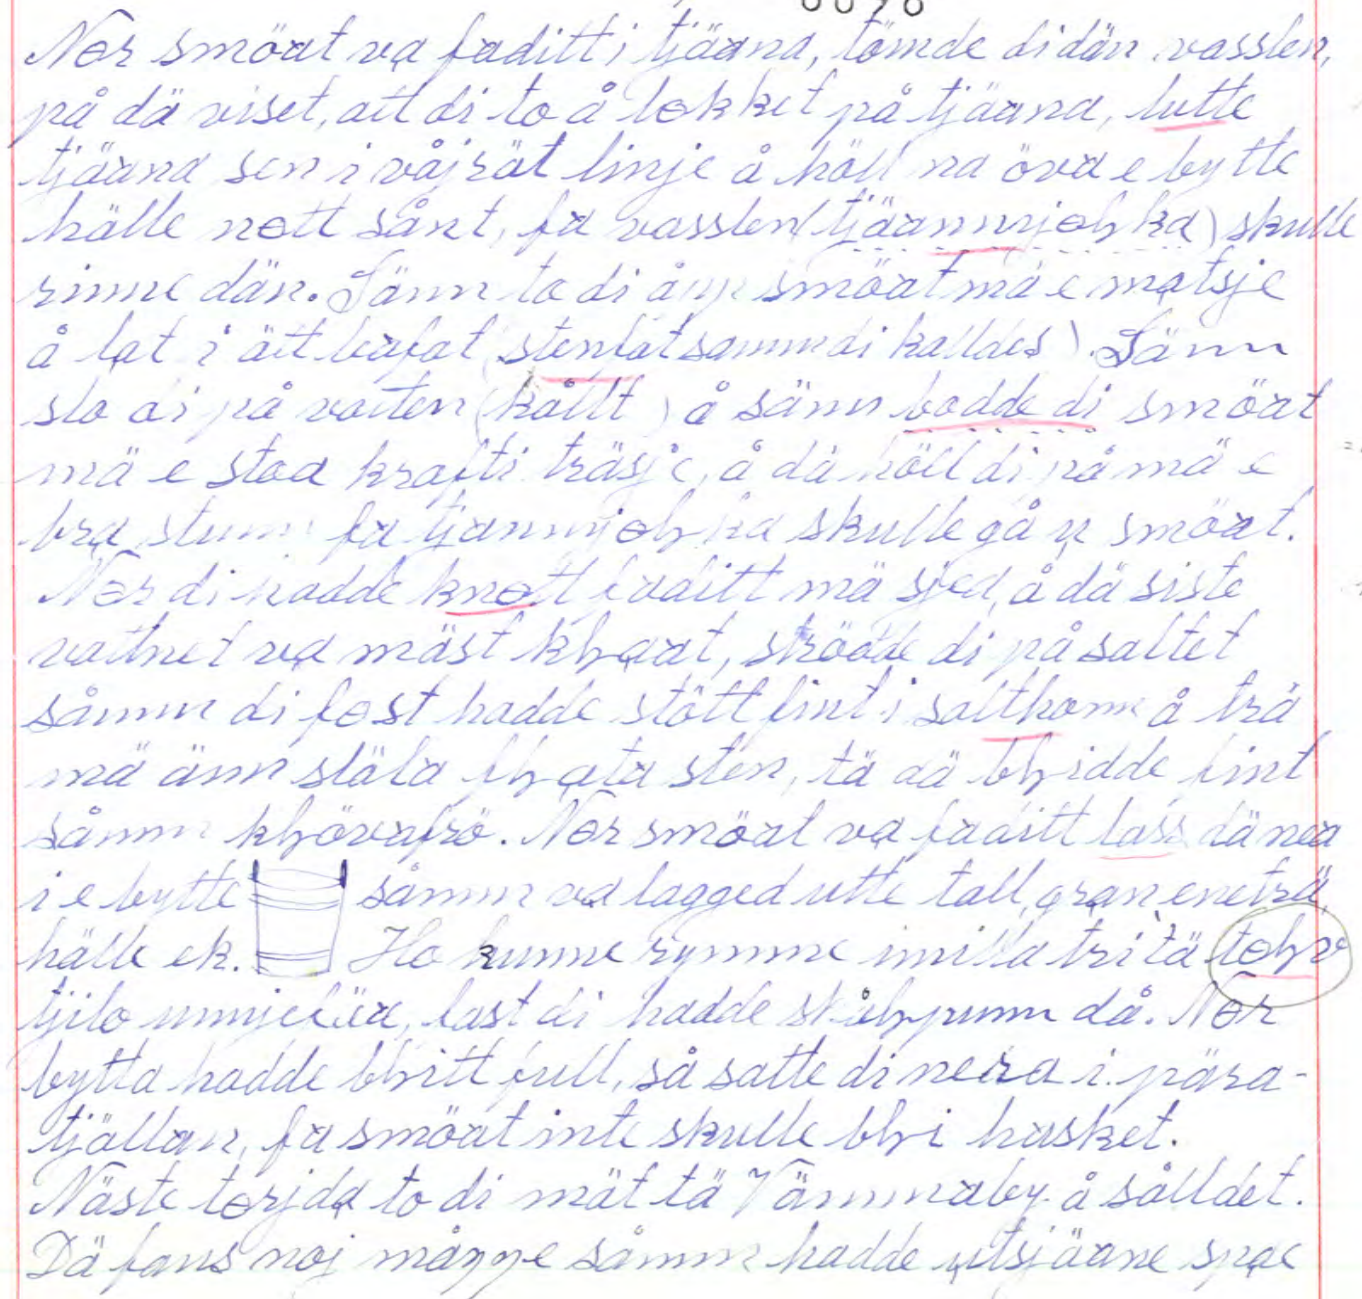 Nər smöat va faditt i tjäana, tömde di dän vasslen,
på dä viset, att di to å lokket på tjäana, lutte
tjäana sen i våjrät linje å höll na öva e bytte
hälle nott sånt, fa vasslen (tjäannmjəḷka) skulle
rinne dän. Sänn to di åpp smöat mä e matsje
å lat i ätt leafat (stenfat samm di kalldes). Sänn
slo di på vatten (kållt) å sänn badde di smöat
mä e stoa krafti träsje, å dä höll di på mä e
bra stunn fa tjäannmjəḷka skulle gå u smöat.
Nər di hadde knott faditt mä sjed, å dä siste
vattnet va mäst kḷaat, strödde di på saltet
såmm di fəst hadde stött fint i salthonn å trä
mä änn släta fḷata sten, tä dä bḷidde fint
såmm kḷövafrö. Nər smöat va faditt lass dä nea
i e bytte såmm va lagged utte tall, gran eneträ,
hälle ek. Ho kunne rymme imilla tri tä təḷv
tjilo unnjefäa, fast di hadde skåḷpunn då. Nər
bytta hadde bḷitt full, så satte di nera i pära-
tjällan, fa smöat inte skulle bḷi hasket.
Näste tərjda to di mät tä Vämmaby å sålldet.
Dä fans noj mågge såmm hadde utsjäane spae